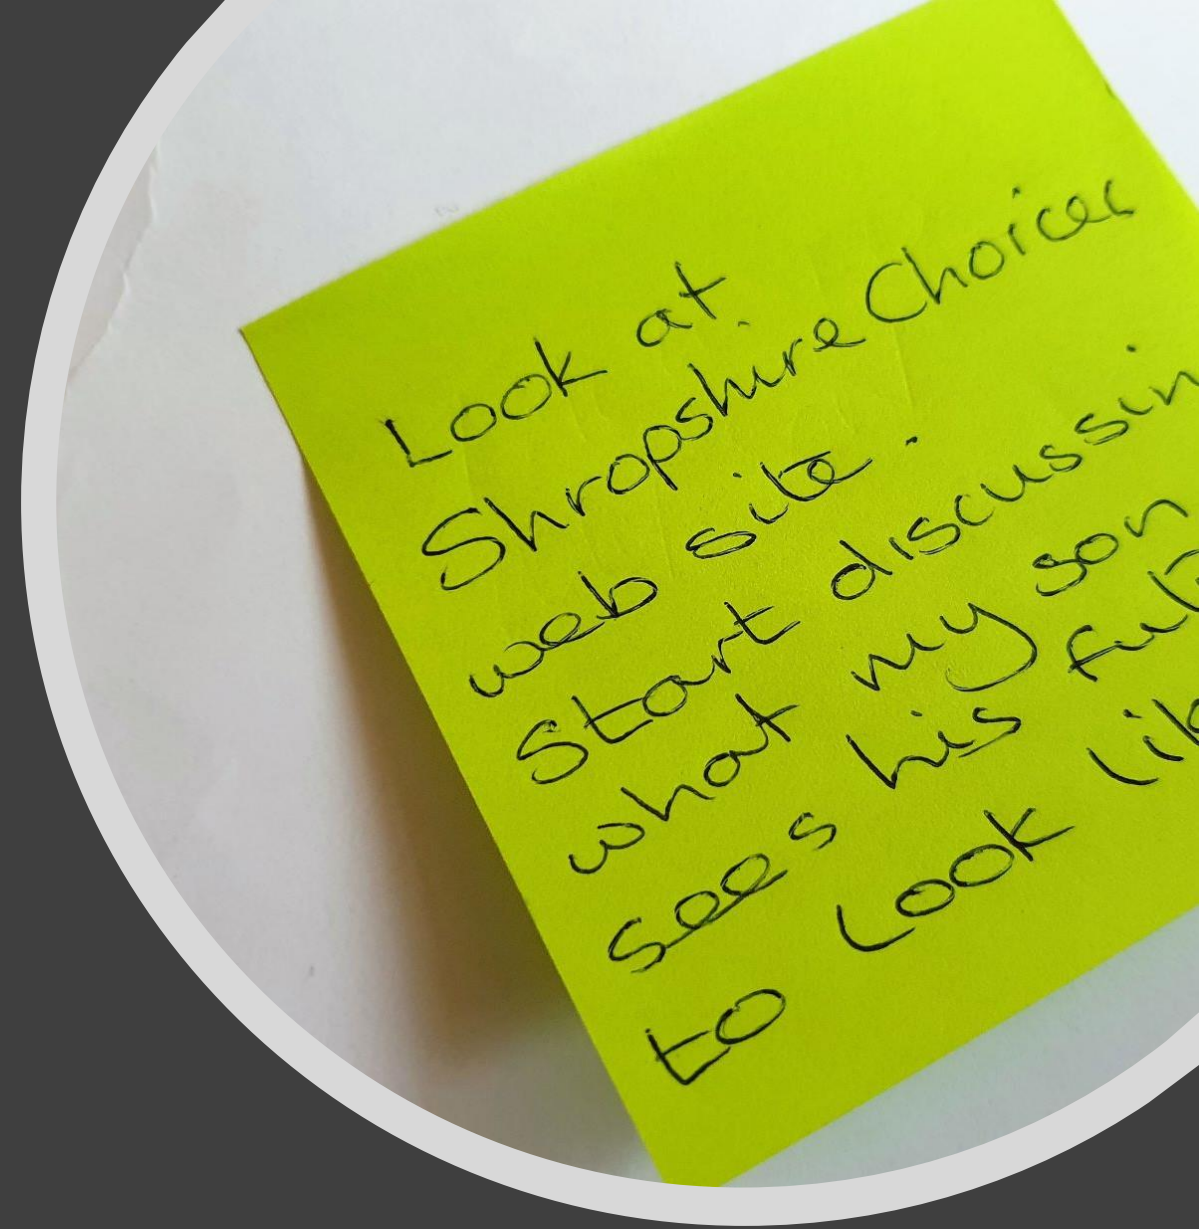 Look at
Shropshire Choices
web site.
Start discussin
what my son
sees his fut
to Look lik